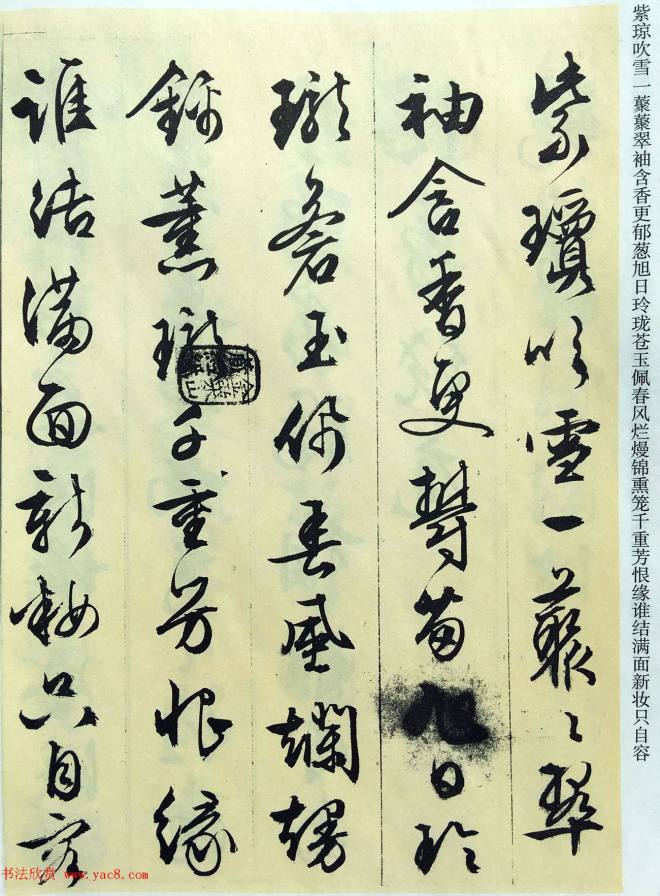 紫琼吹雪一藂藂翠袖含香更郁葱旭日玲珑苍玉佩春风烂熳锦熏笼千重芳恨缘谁结满面新妆只自容
紫瓊吹雪一藂〻翠
袖含香更鬱葱旭日玲
瓏蒼玉佩春風爛熳
錦薰瓏千重芳恨緣
誰結滿面新妝只自容
书法欣赏 www.yac8.com